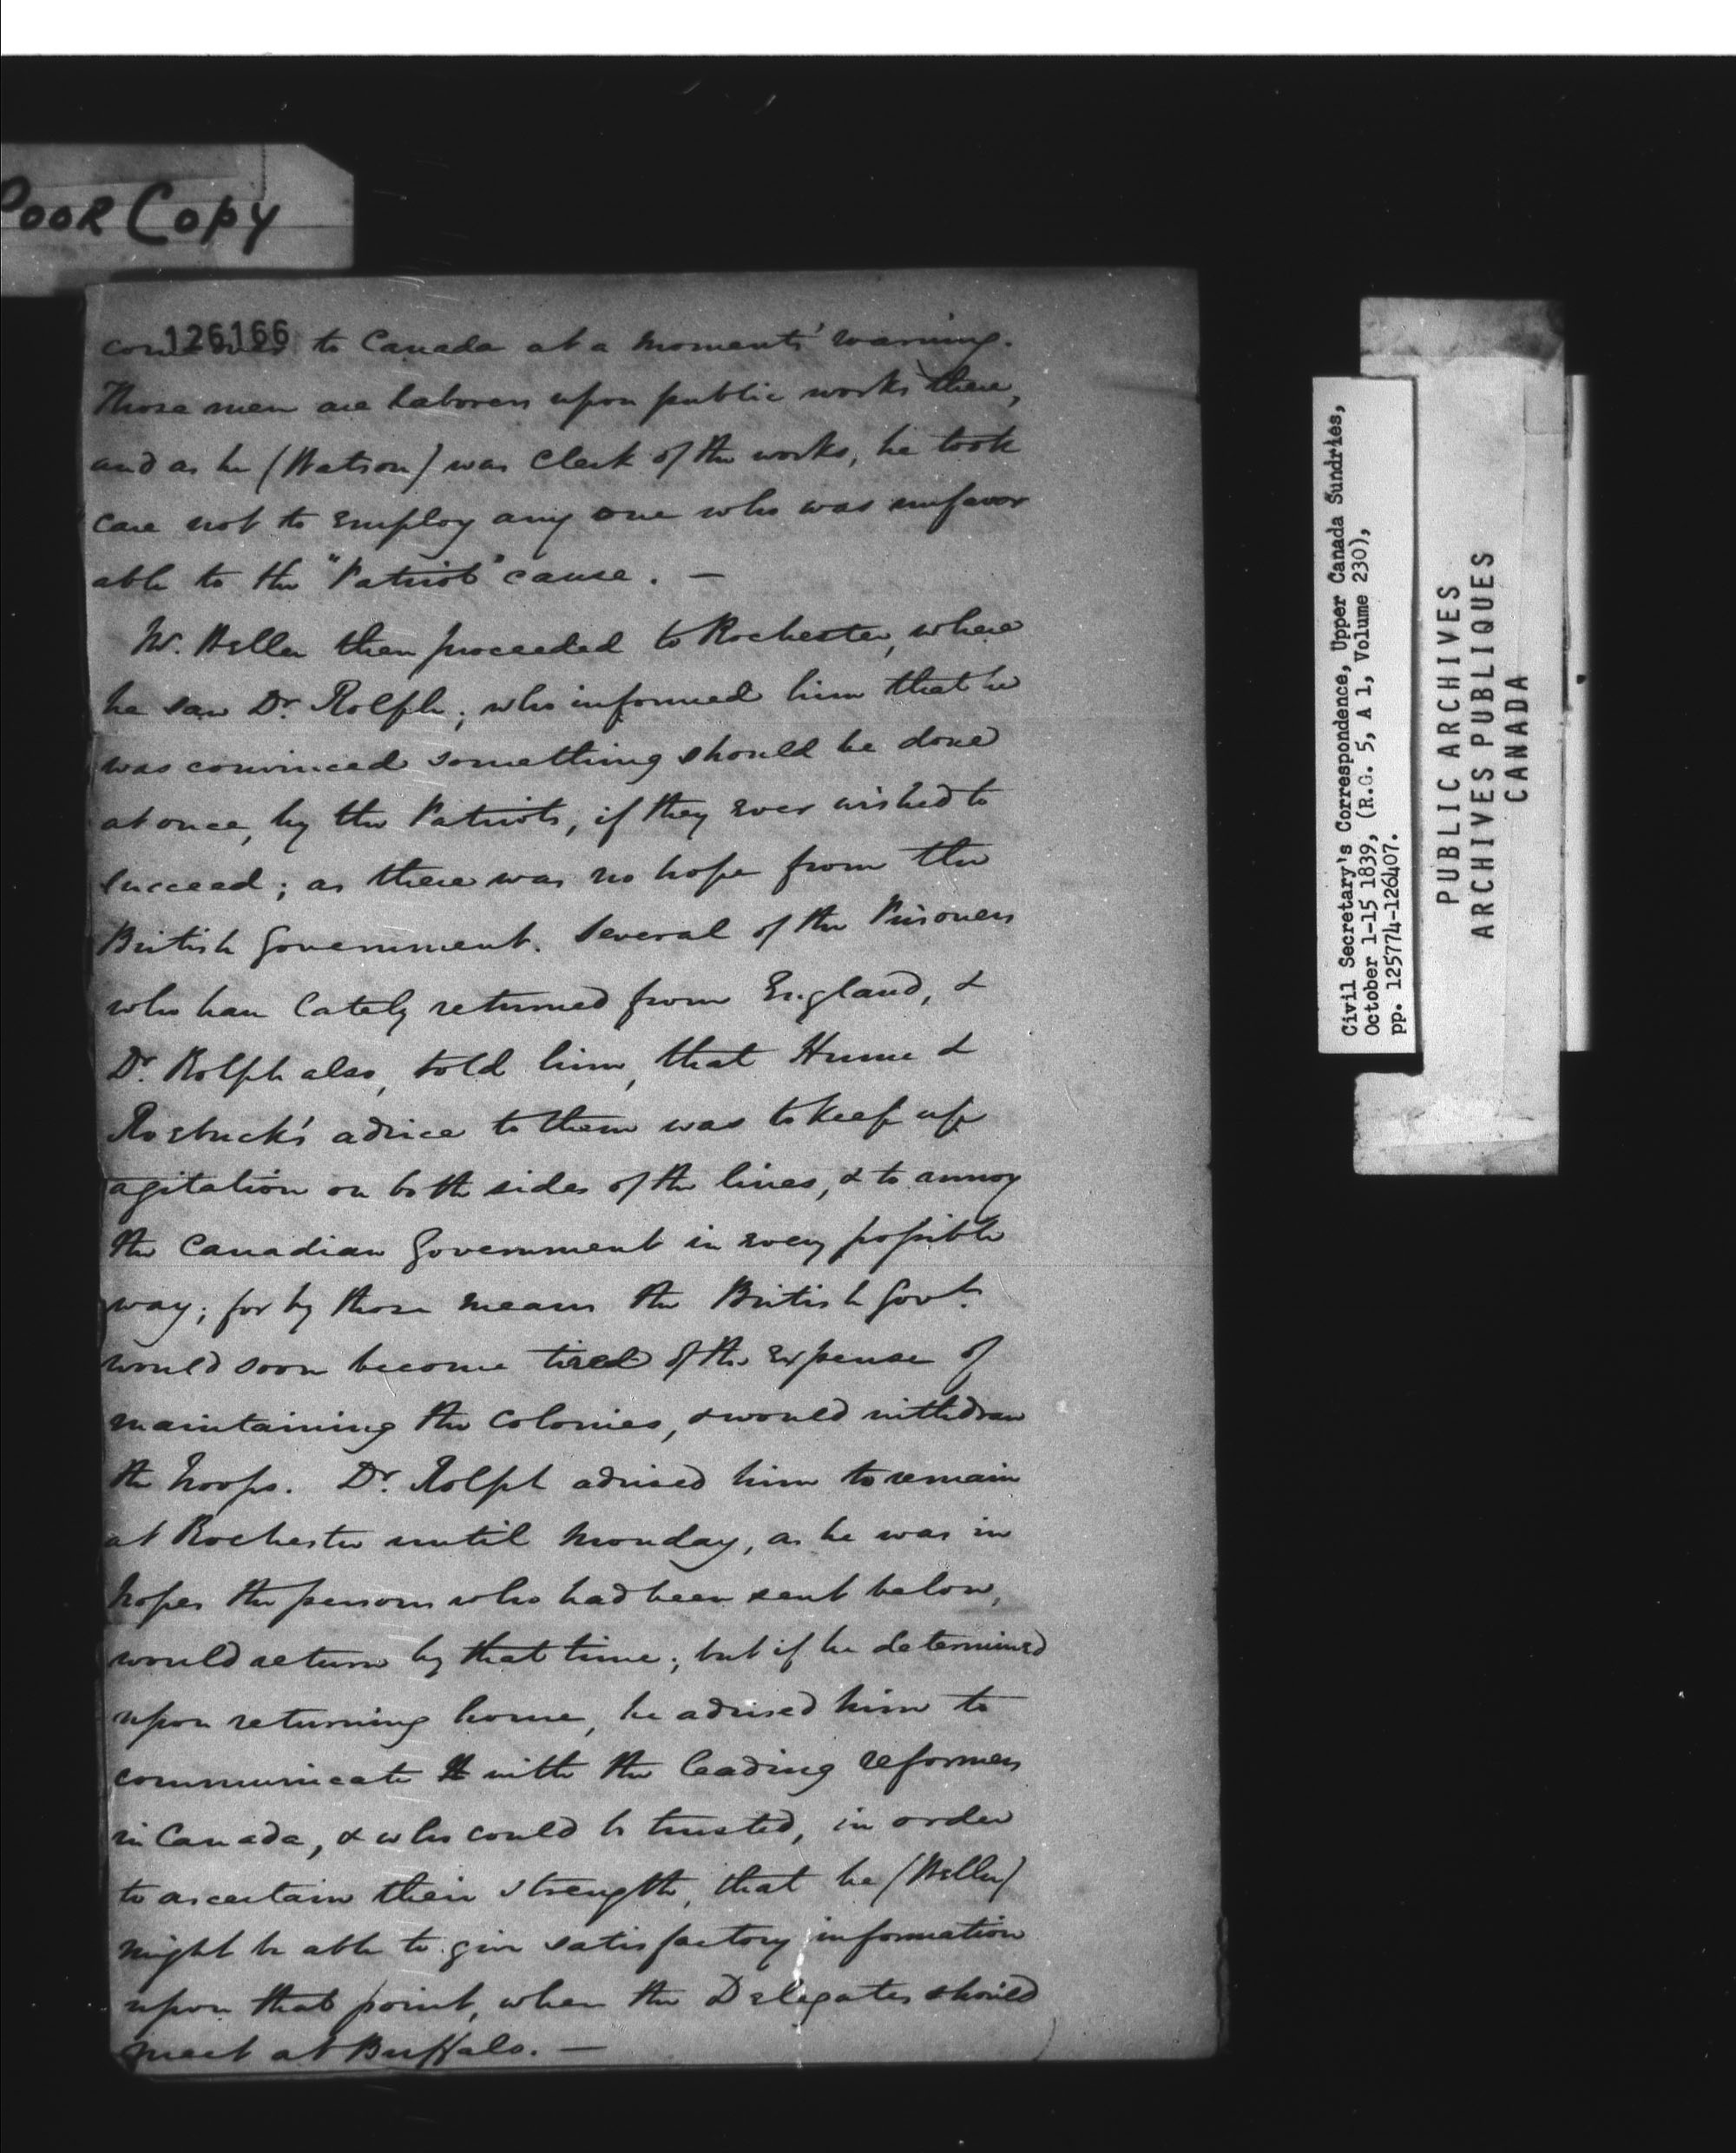 POOR COPY
126166
come over to Canada at a moments' warning.
Those men are laborers upon public works there,
and as he (Watson) was Clerk of the works, he took
care not to employ any one who was unfavor
able to the "Patriot" cause. —
W. Heller then proceeded to Rochester, where
he saw Dr. Rolph; who informed him that he
was convinced something should be done
at once, by the Patriots, if they ever wished to
succeed; as there was no hope from the
British Government. Several of the Prisoners
who have lately returned from England, &
Dr. Rolph also, told him, that Hume &
Roebuck's advice to them was to keep up
agitation on both sides of the lines, & to annoy
the Canadian Government in every possible
way; for by those means the British Govt.
would soon become tired of the expense of
maintaining the Colonies, & would withdraw
the troops. Dr. Rolph advised him to remain
at Rochester until Monday, as he was in
hopes the persons who had been sent below,
would return by that time; but if he determined
upon returning home, he advised him to
communicate with the leading reformers
in Canada, & who could be trusted, in order
to ascertain their strength, that he (Heller)
might be able to give satisfactory information
upon that point, when the Delegates should
meet at Buffalo. —
Civil Secretary's Correspondence, Upper Canada Sundries,
October 1-15 1839, (R.G. 5, A 1, Volume 230),
pp. 125774-126407.
PUBLIC ARCHIVES
ARCHIVES PUBLIQUES
CANADA